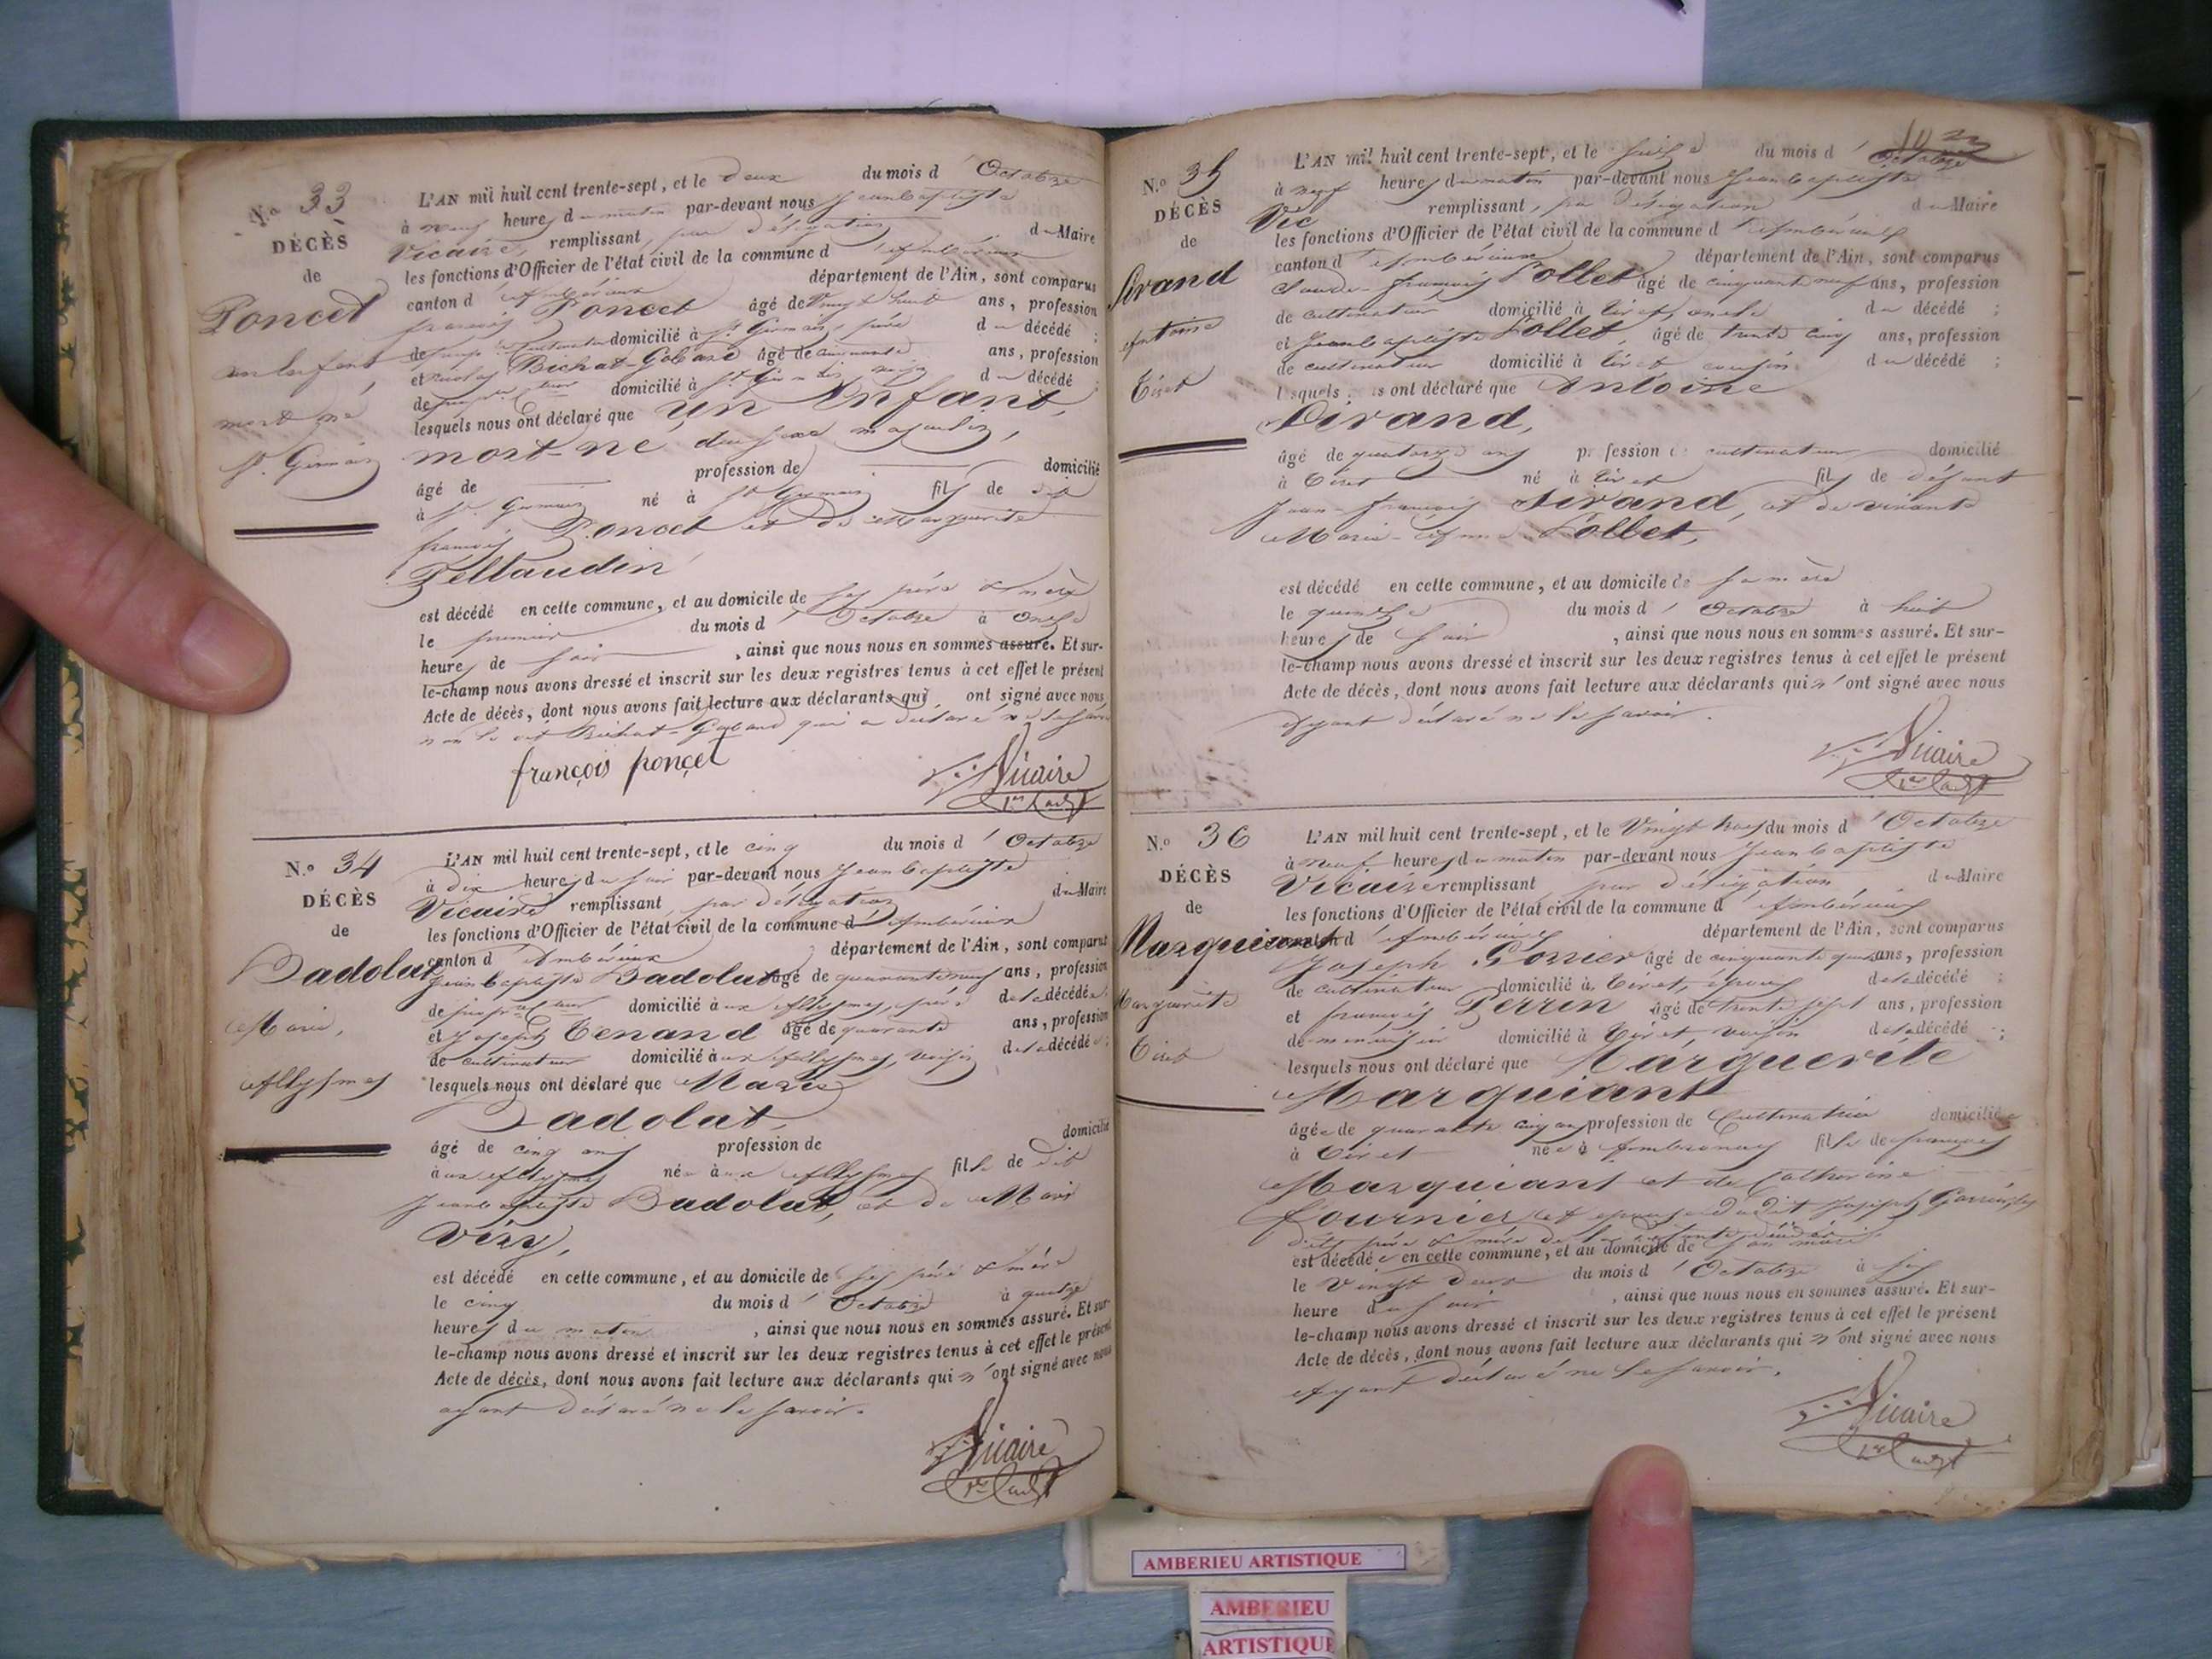 N.o 33
DÉCÈS
de
Poncet
un Enfant
mort-né
St. Germain
L'AN mil huit cent trente-sept, et le deux du mois d'Octobre
à neuf heures du matin par-devant nous Jean Baptiste
Vicaire, remplissant, par délégation du Maire
les fonctions d'Officier de l'état civil de la commune d'Ambérieux
canton d'Ambérieux département de l'Ain, sont comparus
françois Poncet âgé de Vingt huit ans, profession
de domicilié à St. Germain, père du décédé ;
et Bichat-Goband âgé de cinquante ans, profession
de domicilié à St. Germain, voisin du décédé ;
lesquels nous ont déclaré que un Enfant,
mort-né du sexe masculin,
âgé de profession de domicilié
à St. Germain né à St. Germain fils de dit
françois Poncet et de Marguerite
Pellaudin
est décédé en cette commune, et au domicile de ses père & mère
le premier du mois d'Octobre à onze
heures de soir, ainsi que nous nous en sommes assuré. Et sur-
le-champ nous avons dressé et inscrit sur les deux registres tenus à cet effet le présent
Acte de décès, dont nous avons fait lecture aux déclarants qui ont signé avec nous
non le dit Bichat-Goband qui a déclaré ne le savoir
françois ponçet
Vicaire
1er
N.o 34
DÉCÈS
de
Dadolat
Marie,
Allysmes
L'AN mil huit cent trente-sept, et le cinq du mois d'Octobre
à dix heures du soir par-devant nous Jean Baptiste
Vicaire remplissant, par délégation du Maire
les fonctions d'Officier de l'état civil de la commune d'Ambérieux
canton d'Ambérieux département de l'Ain, sont comparus
Jean Baptiste Dadolat âgé de quarante neuf ans, profession
de domicilié aux Allysmes, père de la décédée ;
et Joseph Tenand âgé de quarante ans, profession
de cultivateur domicilié aux Allysmes, voisin de la décédée ;
lesquels nous ont déclaré que Marie
Dadolat,
âgé de cinq ans profession de domicilié
aux Allysmes née aux Allysmes fille de dit
Jean Baptiste Dadolat, et de Marie
Véry,
est décédé en cette commune, et au domicile de ses père & mère
le cinq du mois d'Octobre à quatre
heures du matin, ainsi que nous nous en sommes assuré. Et sur-
le-champ nous avons dressé et inscrit sur les deux registres tenus à cet effet le présent
Acte de décès, dont nous avons fait lecture aux déclarants qui n'ont signé avec nous
ayant déclaré ne le savoir.
Vicaire
1er
N.o 35
DÉCÈS
de
Sirand
Antoine
Tiret
L'AN mil huit cent trente-sept, et le seize du mois d'Octobre
à neuf heures du matin par-devant nous Jean Baptiste
Vic remplissant, par délégation du Maire
les fonctions d'Officier de l'état civil de la commune d'Ambérieux
canton d'Ambérieux département de l'Ain, sont comparus
Claude-françois Pollet âgé de cinquante neuf ans, profession
de cultivateur domicilié à Tiret, oncle du décédé ;
et Jean Baptiste Pollet, âgé de trente cinq ans, profession
de cultivateur domicilié à Tiret cousin du décédé ;
lesquels nous ont déclaré que Antoine
Sirand,
âgé de quatorze ans profession de cultivateur domicilié
à Tiret né à Tiret fils de défunt
Jean-françois Sirand, et de vivante
Marie- Pollet,
est décédé en cette commune, et au domicile de sa mère
le quinze du mois d'Octobre à huit
heures de soir, ainsi que nous nous en sommes assuré. Et sur-
le-champ nous avons dressé et inscrit sur les deux registres tenus à cet effet le présent
Acte de décès, dont nous avons fait lecture aux déclarants qui n'ont signé avec nous
ayant déclaré ne le savoir.
Vicaire
1er
N.o 36
DÉCÈS
de
Marquiant
Marguerite
Tiret
L'AN mil huit cent trente-sept, et le Vingt trois du mois d'Octobre
à neuf heures du matin par-devant nous Jean Baptiste
Vicaire remplissant par délégation du Maire
les fonctions d'Officier de l'état civil de la commune d'Ambérieux
canton d'Ambérieux département de l'Ain, sont comparus
Joseph Gorrier âgé de cinquante ans, profession
de cultivateur domicilié à Tiret, époux de la décédé ;
et françois Perrin âgé de trente sept ans, profession
de menuisier domicilié à Tiret, voisin de la décédé ;
lesquels nous ont déclaré que Marguerite
Marquiant
âgée de quarante cinq ans profession de Cultivatrice domiciliée
à Tiret née à Ambronay fille de françois
Marquiant et de Catherine
fournier et épouse du dit Joseph Gorrier, les
dits père & mère de la défunte décédés
est décédée en cette commune, et au domicile de son mari
le vingt deux du mois d'Octobre à six
heure du soir, ainsi que nous nous en sommes assuré. Et sur-
le-champ nous avons dressé et inscrit sur les deux registres tenus à cet effet le présent
Acte de décès, dont nous avons fait lecture aux déclarants qui n'ont signé avec nous
ayant déclaré ne le savoir.
Vicaire
1er
AMBERIEU ARTISTIQUE
AMBERIEU
ARTISTIQUE